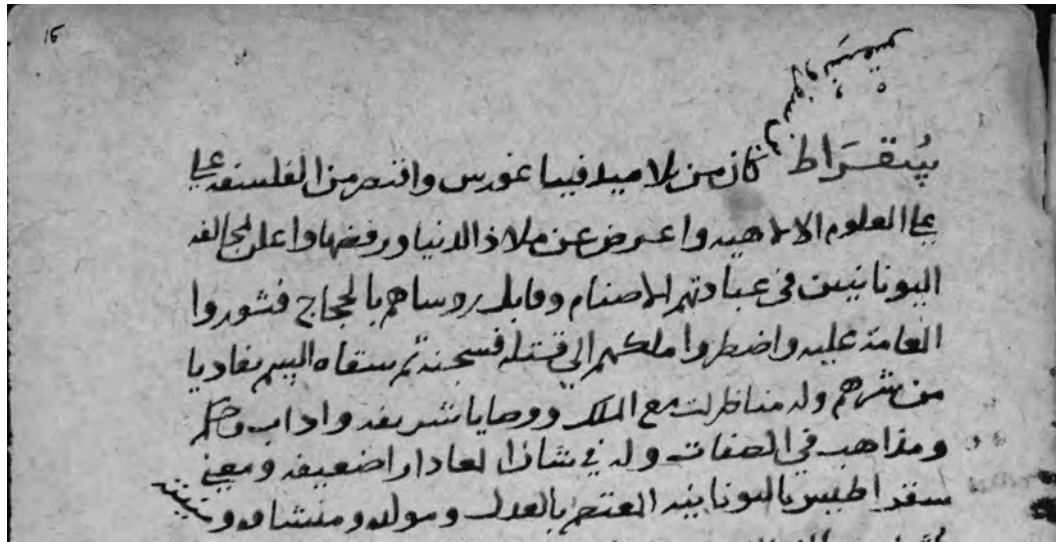 سُقراط كان من تلاميذ فيثاغورس واقتصر من الفلسفه علي
علي العلوم الالاهيه واعرض عن ملاذ الدنيا ورفضها واعلن بمخالفه
اليونانيين في عبادتهم الاصنام وقابل روساهم بالحجاج فثوروا
العامة عليه واضطروا ملكهم الي قتله فسجنه ثم سقاه السم تفاديا
من شرهم وله مناظرات مع الملك ووصايا شريفه واداب وحكم
ومذاهب في الصفات وله في شان المعاد اراضعيفه ومعني
سقراطيس باليونانيه المعتصم بالعدل ومولده ومنشاه و